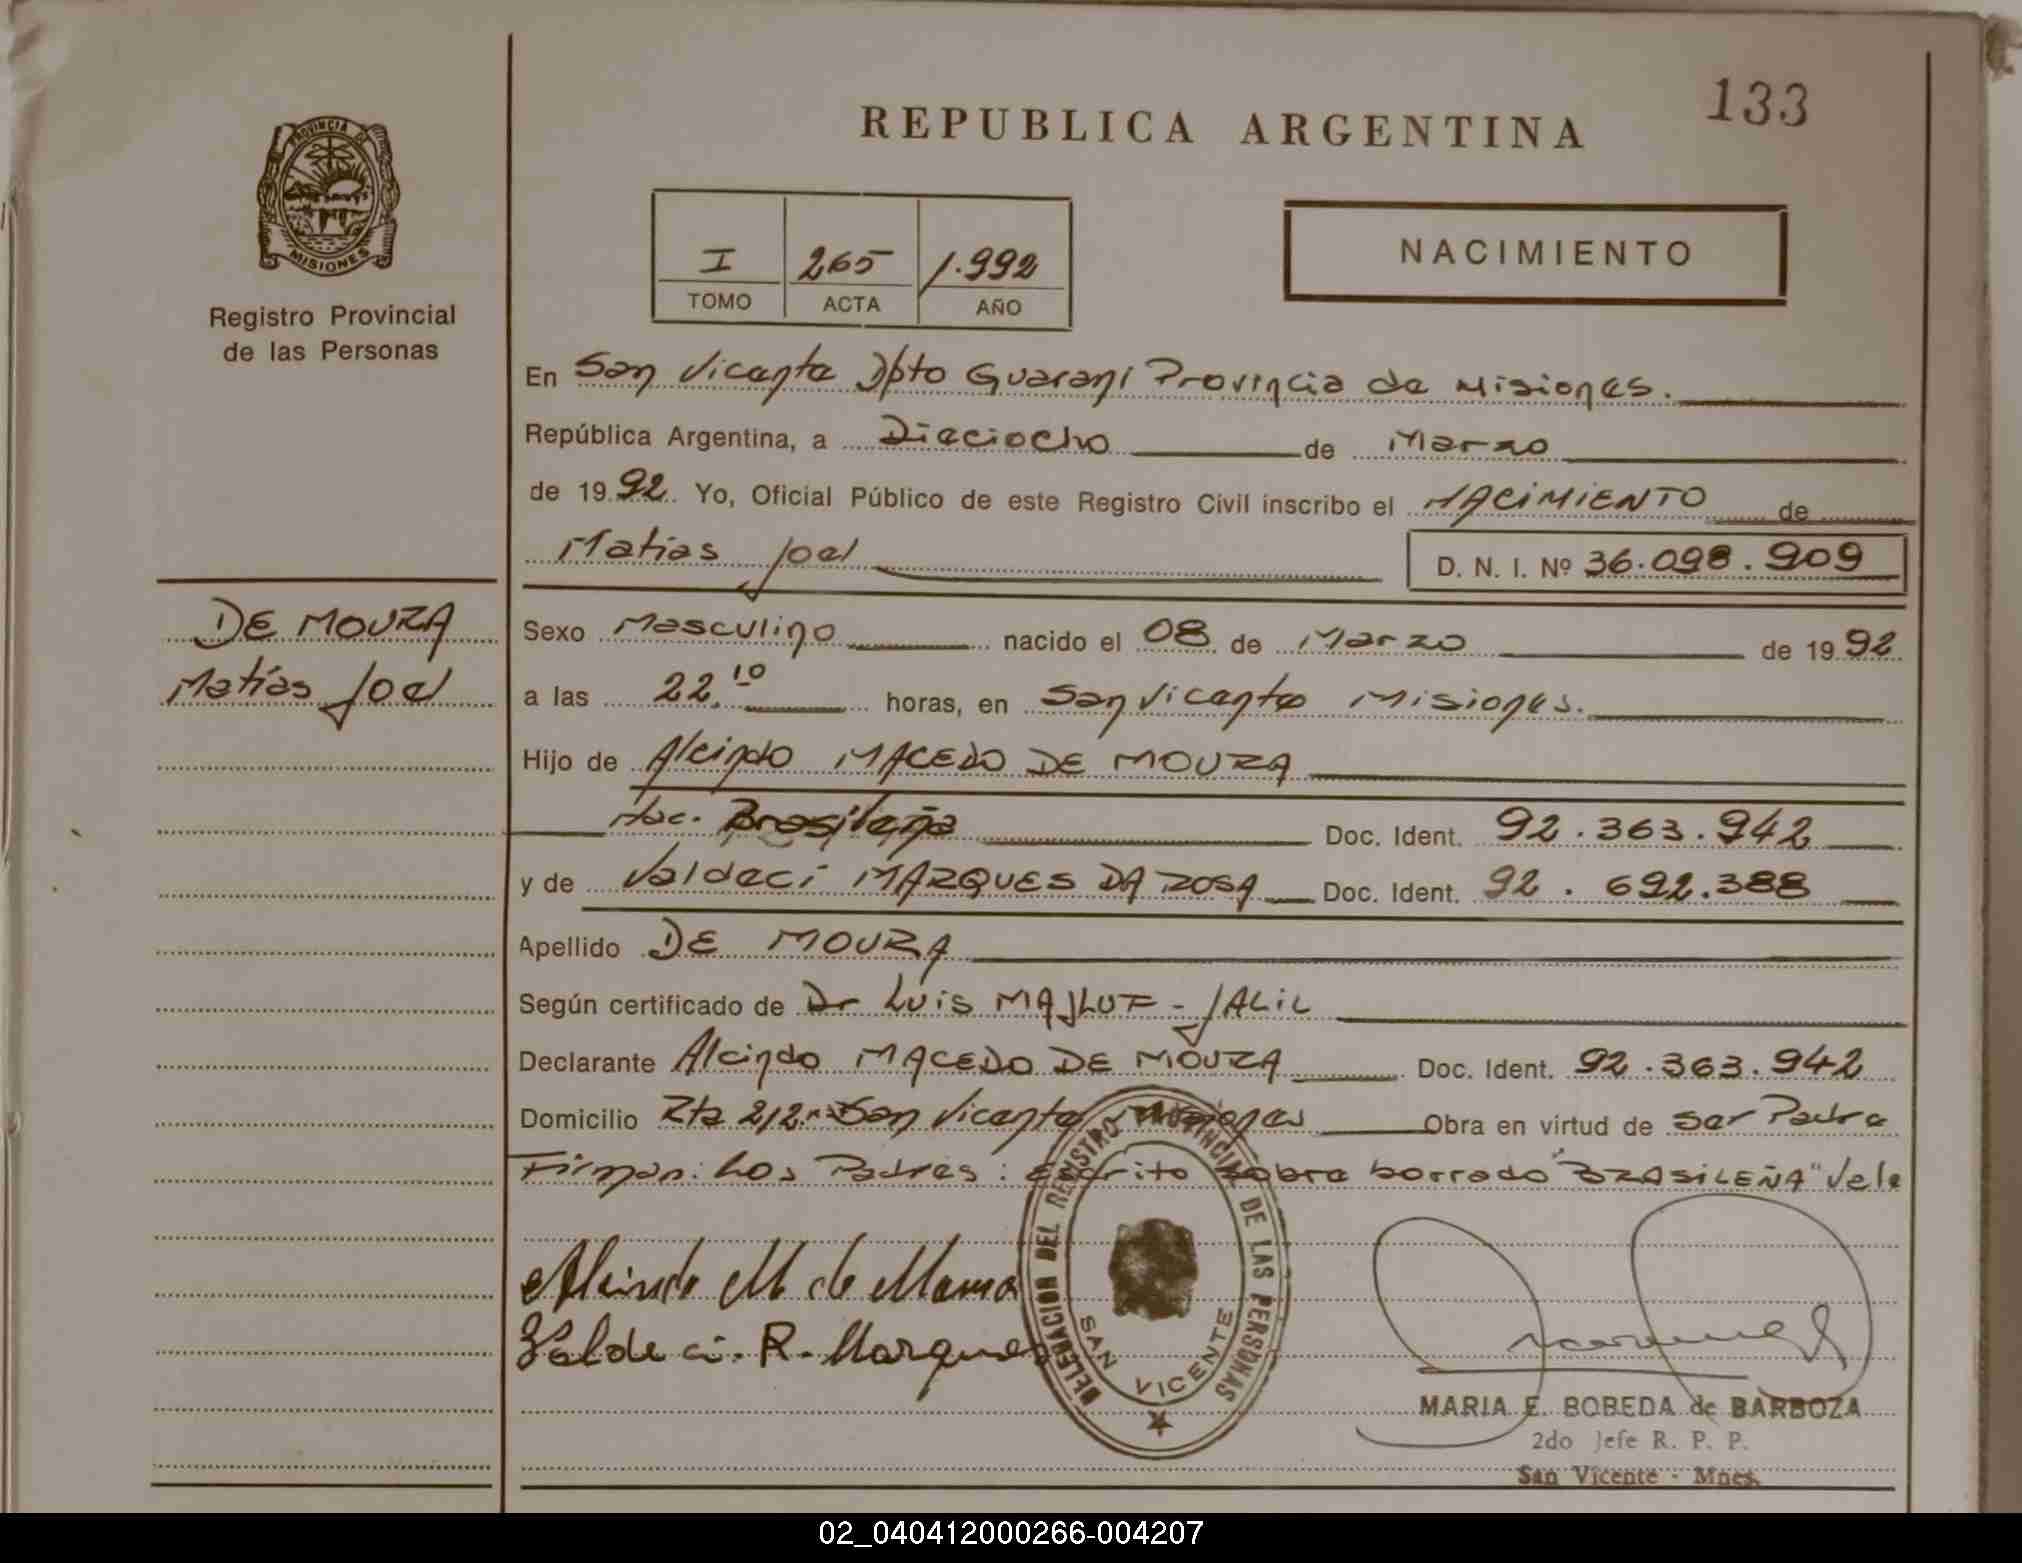 133
REPUBLICA ARGENTINA
PROVINCIA DE
MISIONES
Registro Provincial
de las Personas
I 265 1.992
TOMO ACTA AÑO
NACIMIENTO
En San Vicente Dpto Guaraní Provincia de Misiones.
República Argentina, a Dieciocho de Marzo
de 1992 Yo, Oficial Público de este Registro Civil inscribo el NACIMIENTO de
Matias Joel D. N. I. Nº 36.098.909
DE MOURA
Matías Joel
Sexo Masculino nacido el 08 de Marzo de 1992
a las 22.10 horas, en San Vicente Misiones.
Hijo de Alcindo MACEDO DE MOURA
Nac. Brasileña Doc. Ident. 92.363.942
y de Valdeci MARQUES DA ROSA Doc. Ident. 92.692.388
Apellido DE MOURA
Según certificado de Dr Luis MAJLUF - JALIL
Declarante Alcindo MACEDO DE MOURA Doc. Ident. 92.363.942
Domicilio Rta 212 San Vicente Misiones Obra en virtud de ser Padre
Firman: Los Padres: escrito sobre borrado "BRASILEÑA" Vele
Alcindo M. de Moura
Valdeci. R. Marques
DELEGACION DEL REGISTRO PROVINCIAL DE LAS PERSONAS
SAN VICENTE
MARIA E. BOBEDA de BARBOZA
2do Jefe R. P. P.
San Vicente - Mnes.
02_040412000266-004207